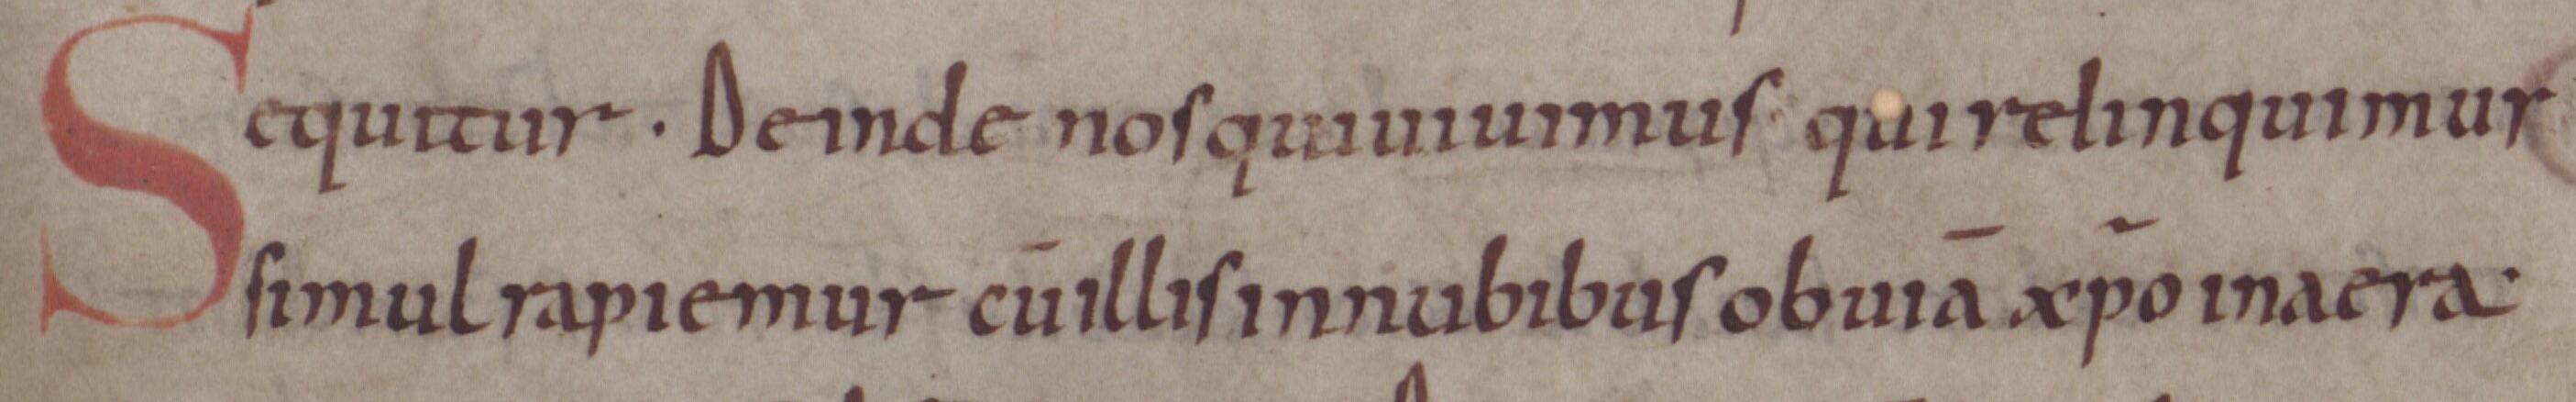 Sequitur · Deinde nos quiuiuimus qui relinquimur
simul rapiemur cū illis in nubibus obuiā xp̄o in aera·